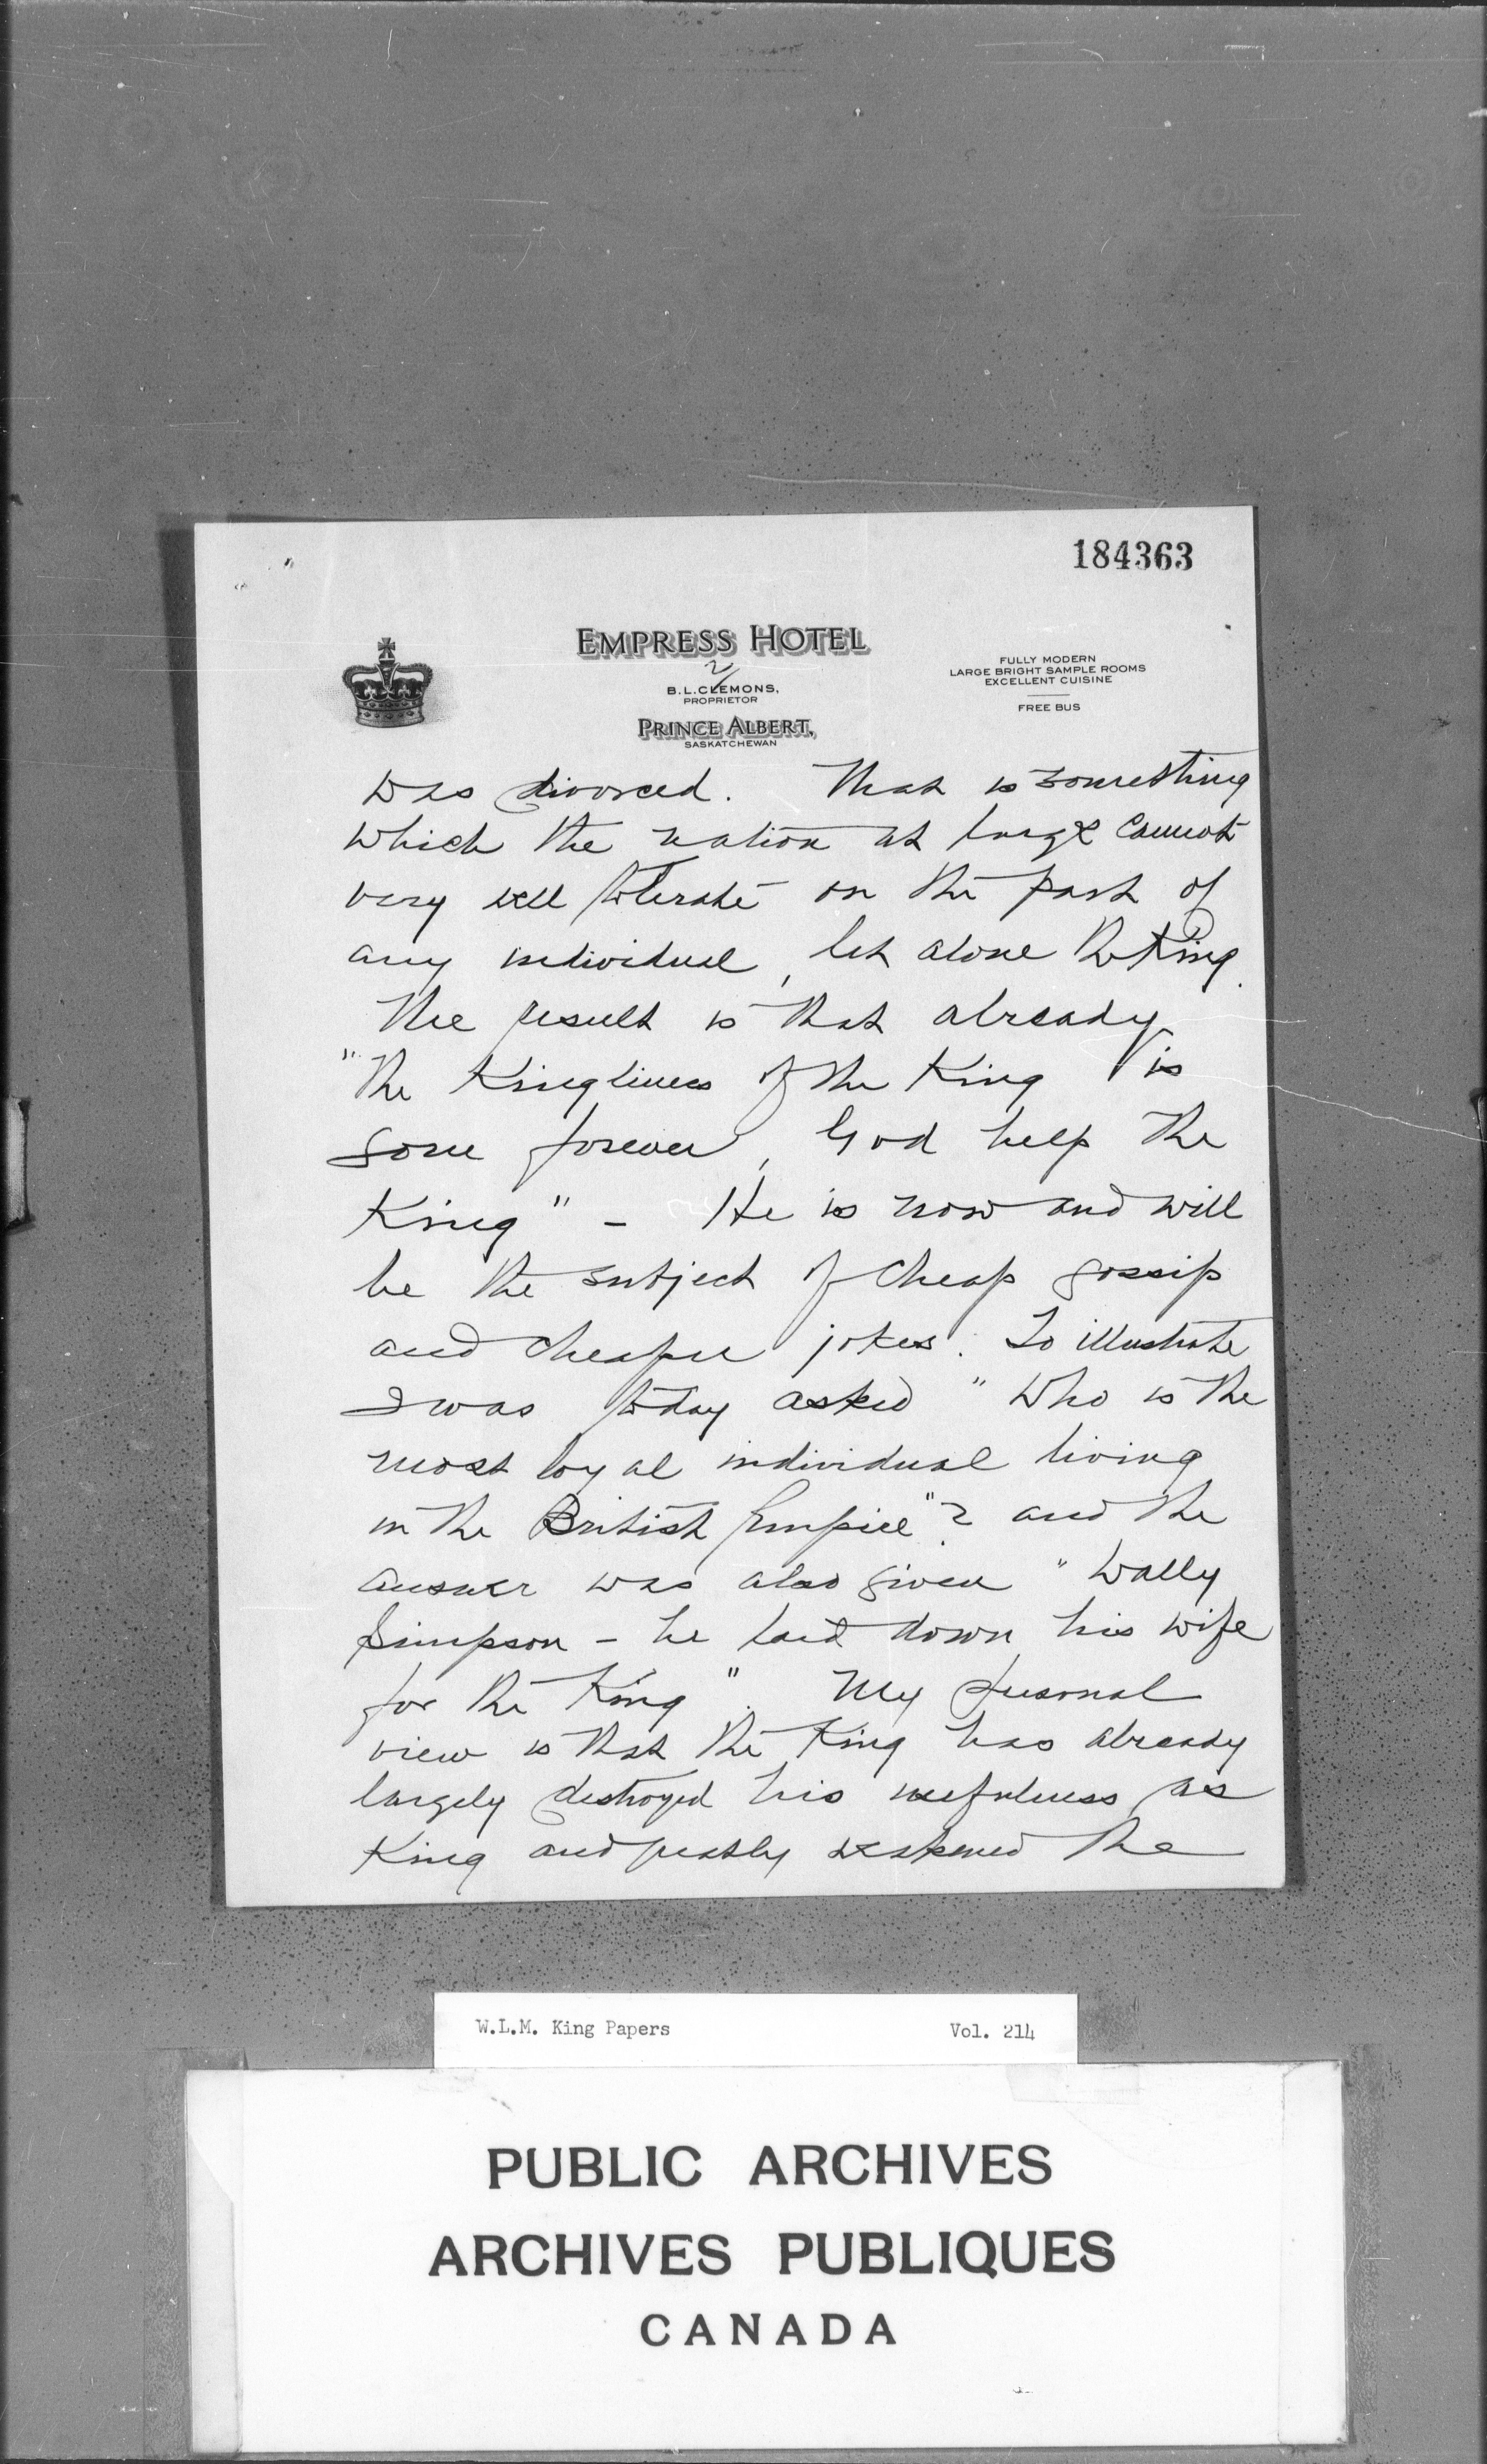 184363
EMPRESS HOTEL
2
B.L.CLEMONS,
PROPRIETOR
PRINCE ALBERT,
SASKATCHEWAN
FULLY MODERN
LARGE BRIGHT SAMPLE ROOMS
EXCELLENT CUISINE
FREE BUS
was divorced. That is something
which the nation at large cannot
very well tolerate on the part of
any individual, let alone the King.
The result is that already
"The Kingliness of the King is
gone forever, God help the
King" - He is now and will
be the subject of cheap gossip
and cheaper jokes. To illustrate
I was today asked "Who is the
most loyal individual living
in the British Empire"? and the
answer was also given "Wally
Simpson - he laid down his wife
for the King". My personal
view is that the King has already
largely destroyed his usefulness as
King and greatly weakened the
W.L.M. King Papers Vol. 214
PUBLIC ARCHIVES
ARCHIVES PUBLIQUES
CANADA